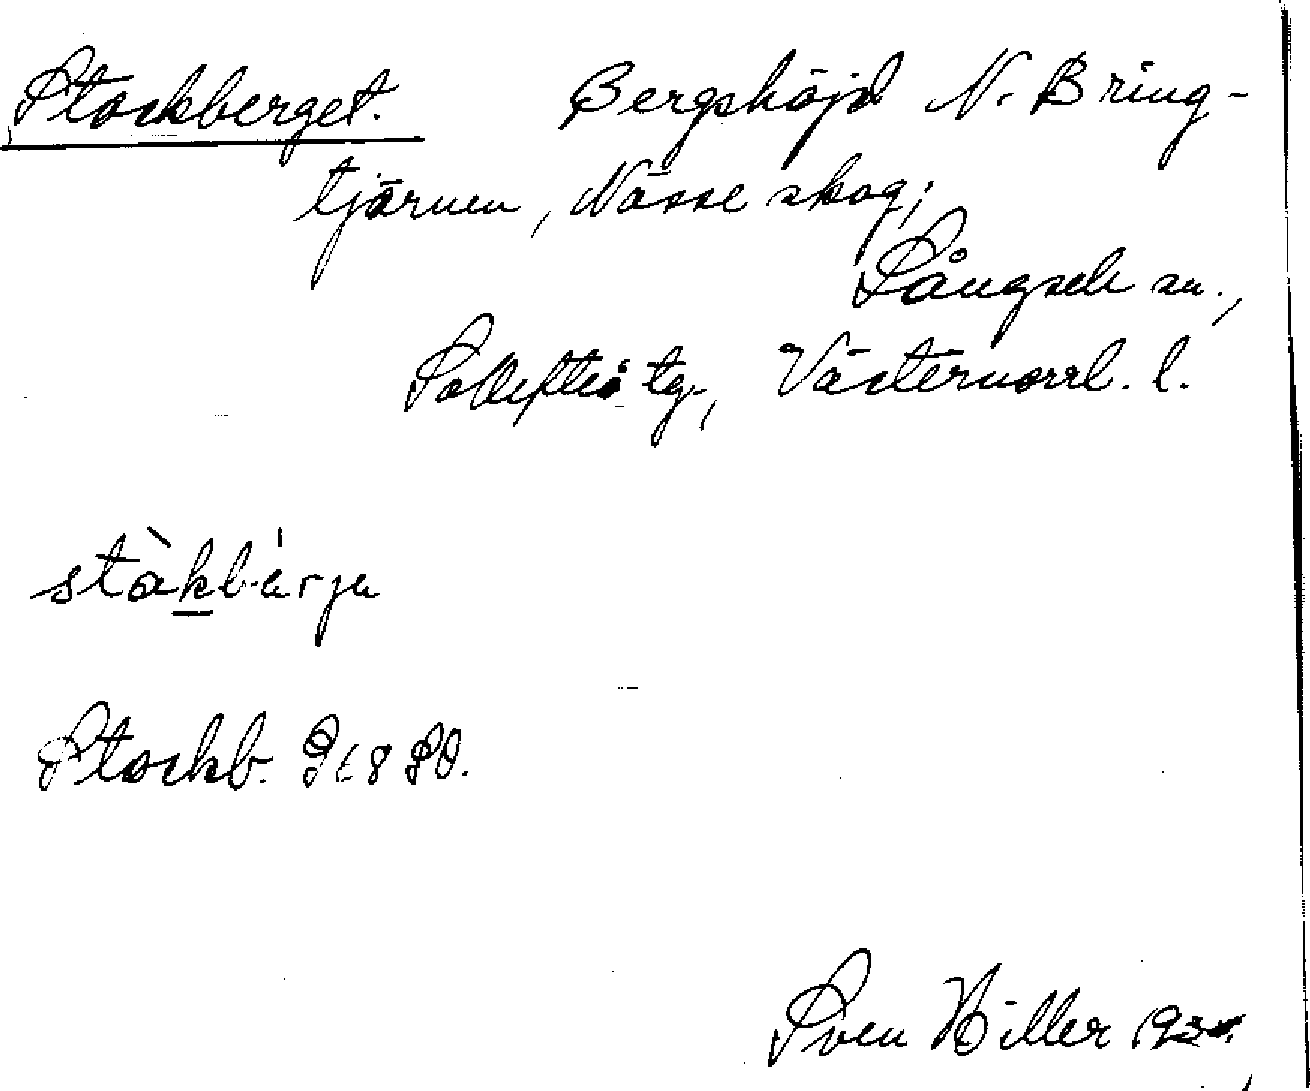 Stockberget. Bergshöjd N. Bring-
tjärnen, Nässe skog;
Långsele sn.,
Sollefteå tg., Västernorrl. l.
stàkbárja
Stockb. SO.
Sven Hiller